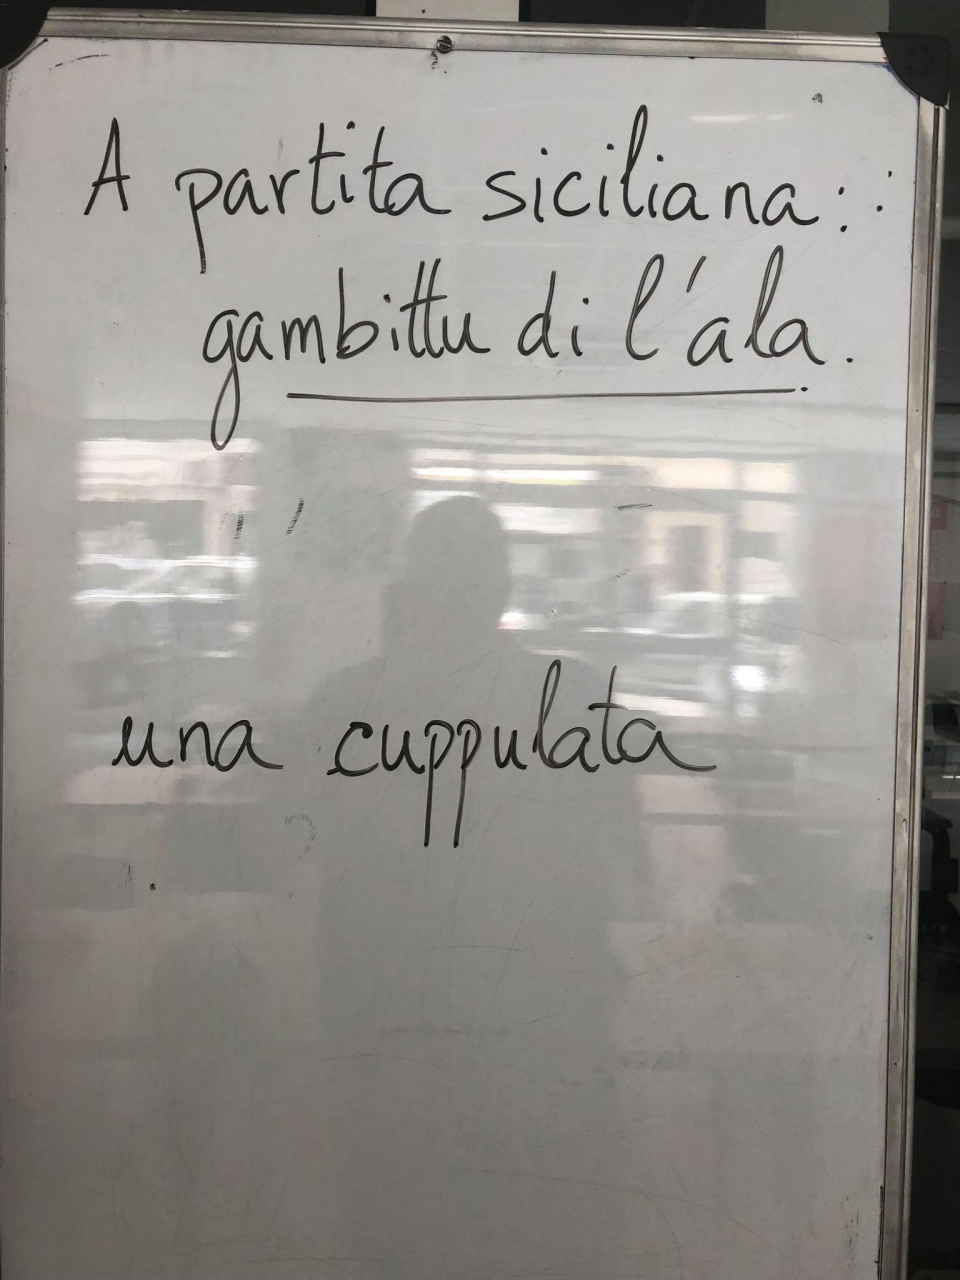 A partita siciliana:
gambittu di l'ala.
una cuppulata